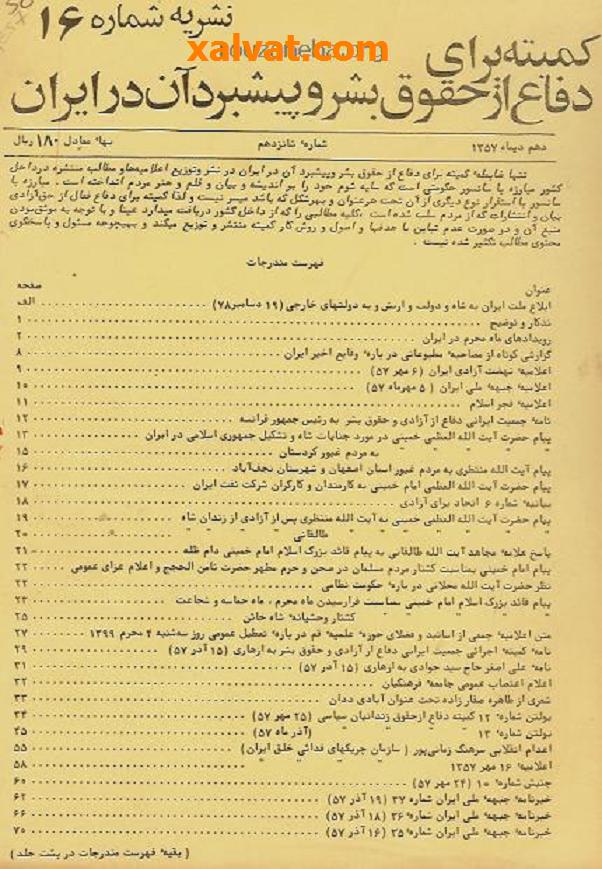 نشریه شماره ۱۶
xalvat.com
کمیته برای
دفاع از حقوق بشر و پیشبرد آن در ایران
دهم دیماه ۱۳۵۷ شماره شانزدهم بها معادل ۱۸۰ ریال
تنها ضابطه کمیته برای دفاع از حقوق بشر و پیشبرد آن در ایران در نشر و توزیع اعلامیه‌ها و مطالب منتشره در داخل
کشور مبارزه با سانسور حکومتی است که سایه شوم خود را بر اندیشه و بیان و قلم و هنر مردم انداخته است. مبارزه با
سانسور با استقرار نوع دیگری از آن تحت هر عنوان و بهر شکل که باشد میسر نیست و لذا کمیته برای دفاع فعال از حق آزادی
بیان و انتشارات که از مردم سلب شده است، کلیه مطالبی را که از داخل کشور دریافت میدارد عینا و با توجه به موثق بودن
منبع آن و در صورت عدم تباین با هدفها و اصول و روش کار کمیته منتشر و توزیع میکند و بهیچوجه مسئول و پاسخگوی
محتوی مطالب تکثیر شده نیست.
فهرست مندرجات
عنوان صفحه
ابلاغ ملت ایران به شاه و دولت و ارتش و به دولتهای خارجی (۱۹ دسامبر ۷۸) الف
تذکار و توضیح ۱
رویدادهای ماه محرم در ایران ۲
گزارشی کوتاه از مصاحبه مطبوعاتی در باره وقایع اخیر ایران ۸
اعلامیه نهضت آزادی ایران (۶ مهر ۵۷) ۹
اعلامیه جبهه ملی ایران (۵ مهرماه ۵۷) ۱۰
اعلامیه فجر اسلام ۱۱
نامه جمعیت ایرانی دفاع از آزادی و حقوق بشر به رئیس جمهور فرانسه ۱۲
پیام حضرت آیت الله العظمی خمینی در مورد جنایات شاه و تشکیل جمهوری اسلامی در ایران ۱۳
به مردم غیور کردستان ۱۵
پیام آیت الله منتظری به مردم غیور استان اصفهان و شهرستان نجف‌آباد ۱۶
پیام حضرت آیت الله العظمی امام خمینی به کارمندان و کارگران شرکت نفت ایران ۱۷
بیانیه شماره ۶ اتحاد برای آزادی ۱۸
پیام حضرت آیت الله العظمی خمینی به آیت الله منتظری پس از آزادی از زندان شاه ۱۹
طالقانی ۲۰
پاسخ علامه مجاهد آیت الله طالقانی به پیام قائد بزرگ اسلام امام خمینی دام ظله ۲۱
پیام امام خمینی بمناسبت کشتار مردم مسلمان در صحن و حرم مطهر حضرت ثامن الحجج و اعلام عزای عمومی ۲۲
نظر حضرت آیت الله محلاتی در باره حکومت نظامی ۲۲
پیام قائد بزرگ اسلام امام خمینی بمناسبت فرارسیدن ماه محرم، ماه حماسه و شجاعت ۲۳
کشتار وحشیانه شاه خائن ۲۵
متن اعلامیه جمعی از اساتید و فضلای حوزه علمیه قم در باره تعطیل عمومی روز سه‌شنبه ۴ محرم ۱۳۹۹ ۲۷
نامه کمیته اجرائی جمعیت ایرانی دفاع از آزادی و حقوق بشر به ازهاری (۱۵ آذر ۵۷) ۲۹
نامه علی اصغر حاج سید جوادی به ازهاری (۱۵ آذر ۵۷) ۳۱
اعلام اعتصاب عمومی جامعه فرهنگیان ۳۲
شعری از طاهره صفارزاده تحت عنوان آبادی ددان ۳۳
بولتن شماره ۱۲ کمیته دفاع از حقوق زندانیان سیاسی (۲۵ مهر ۵۷) ۳۴
بولتن شماره ۱۳ " " " " (آذر ماه ۵۷) ۴۵
اعدام انقلابی سرهنگ زمانی‌پور (سازمان چریکهای فدائی خلق ایران) ۵۵
اعلامیه ۱۶ مهر ۱۳۵۷ " " " " ۵۸
جنبش شماره ۱۰ (۲۴ مهر ۵۷) ۶۰
خبرنامه جبهه ملی ایران شماره ۳۷ (۱۹ آذر ۵۷) ۶۲
خبرنامه جبهه ملی ایران شماره ۳۶ (۱۸ آذر ۵۷) ۶۶
خبرنامه جبهه ملی ایران شماره ۳۵ (۱۶ آذر ۵۷) ۷۰
(بقیه فهرست مندرجات در پشت جلد)